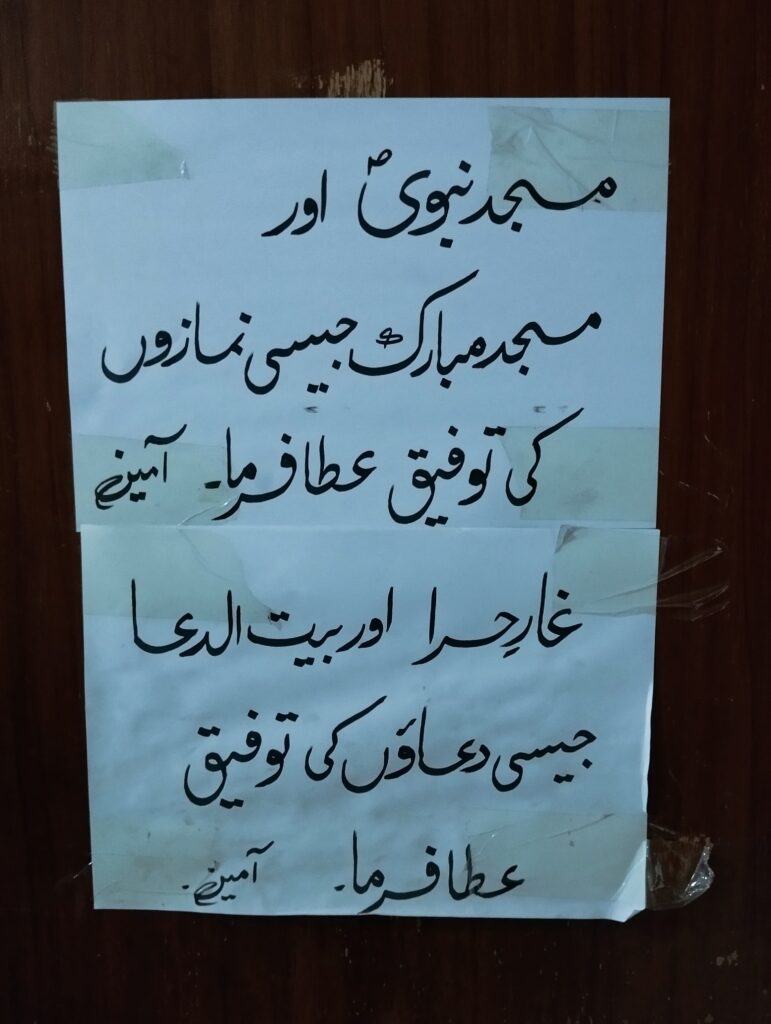 مسجد نبویؐ اور
مسجد مبارک جیسی نمازوں
کی توفیق عطا فرما۔ آمین
غارِ حرا اور بیت الدعا
جیسی دعاؤں کی توفیق
عطا فرما۔ آمین۔